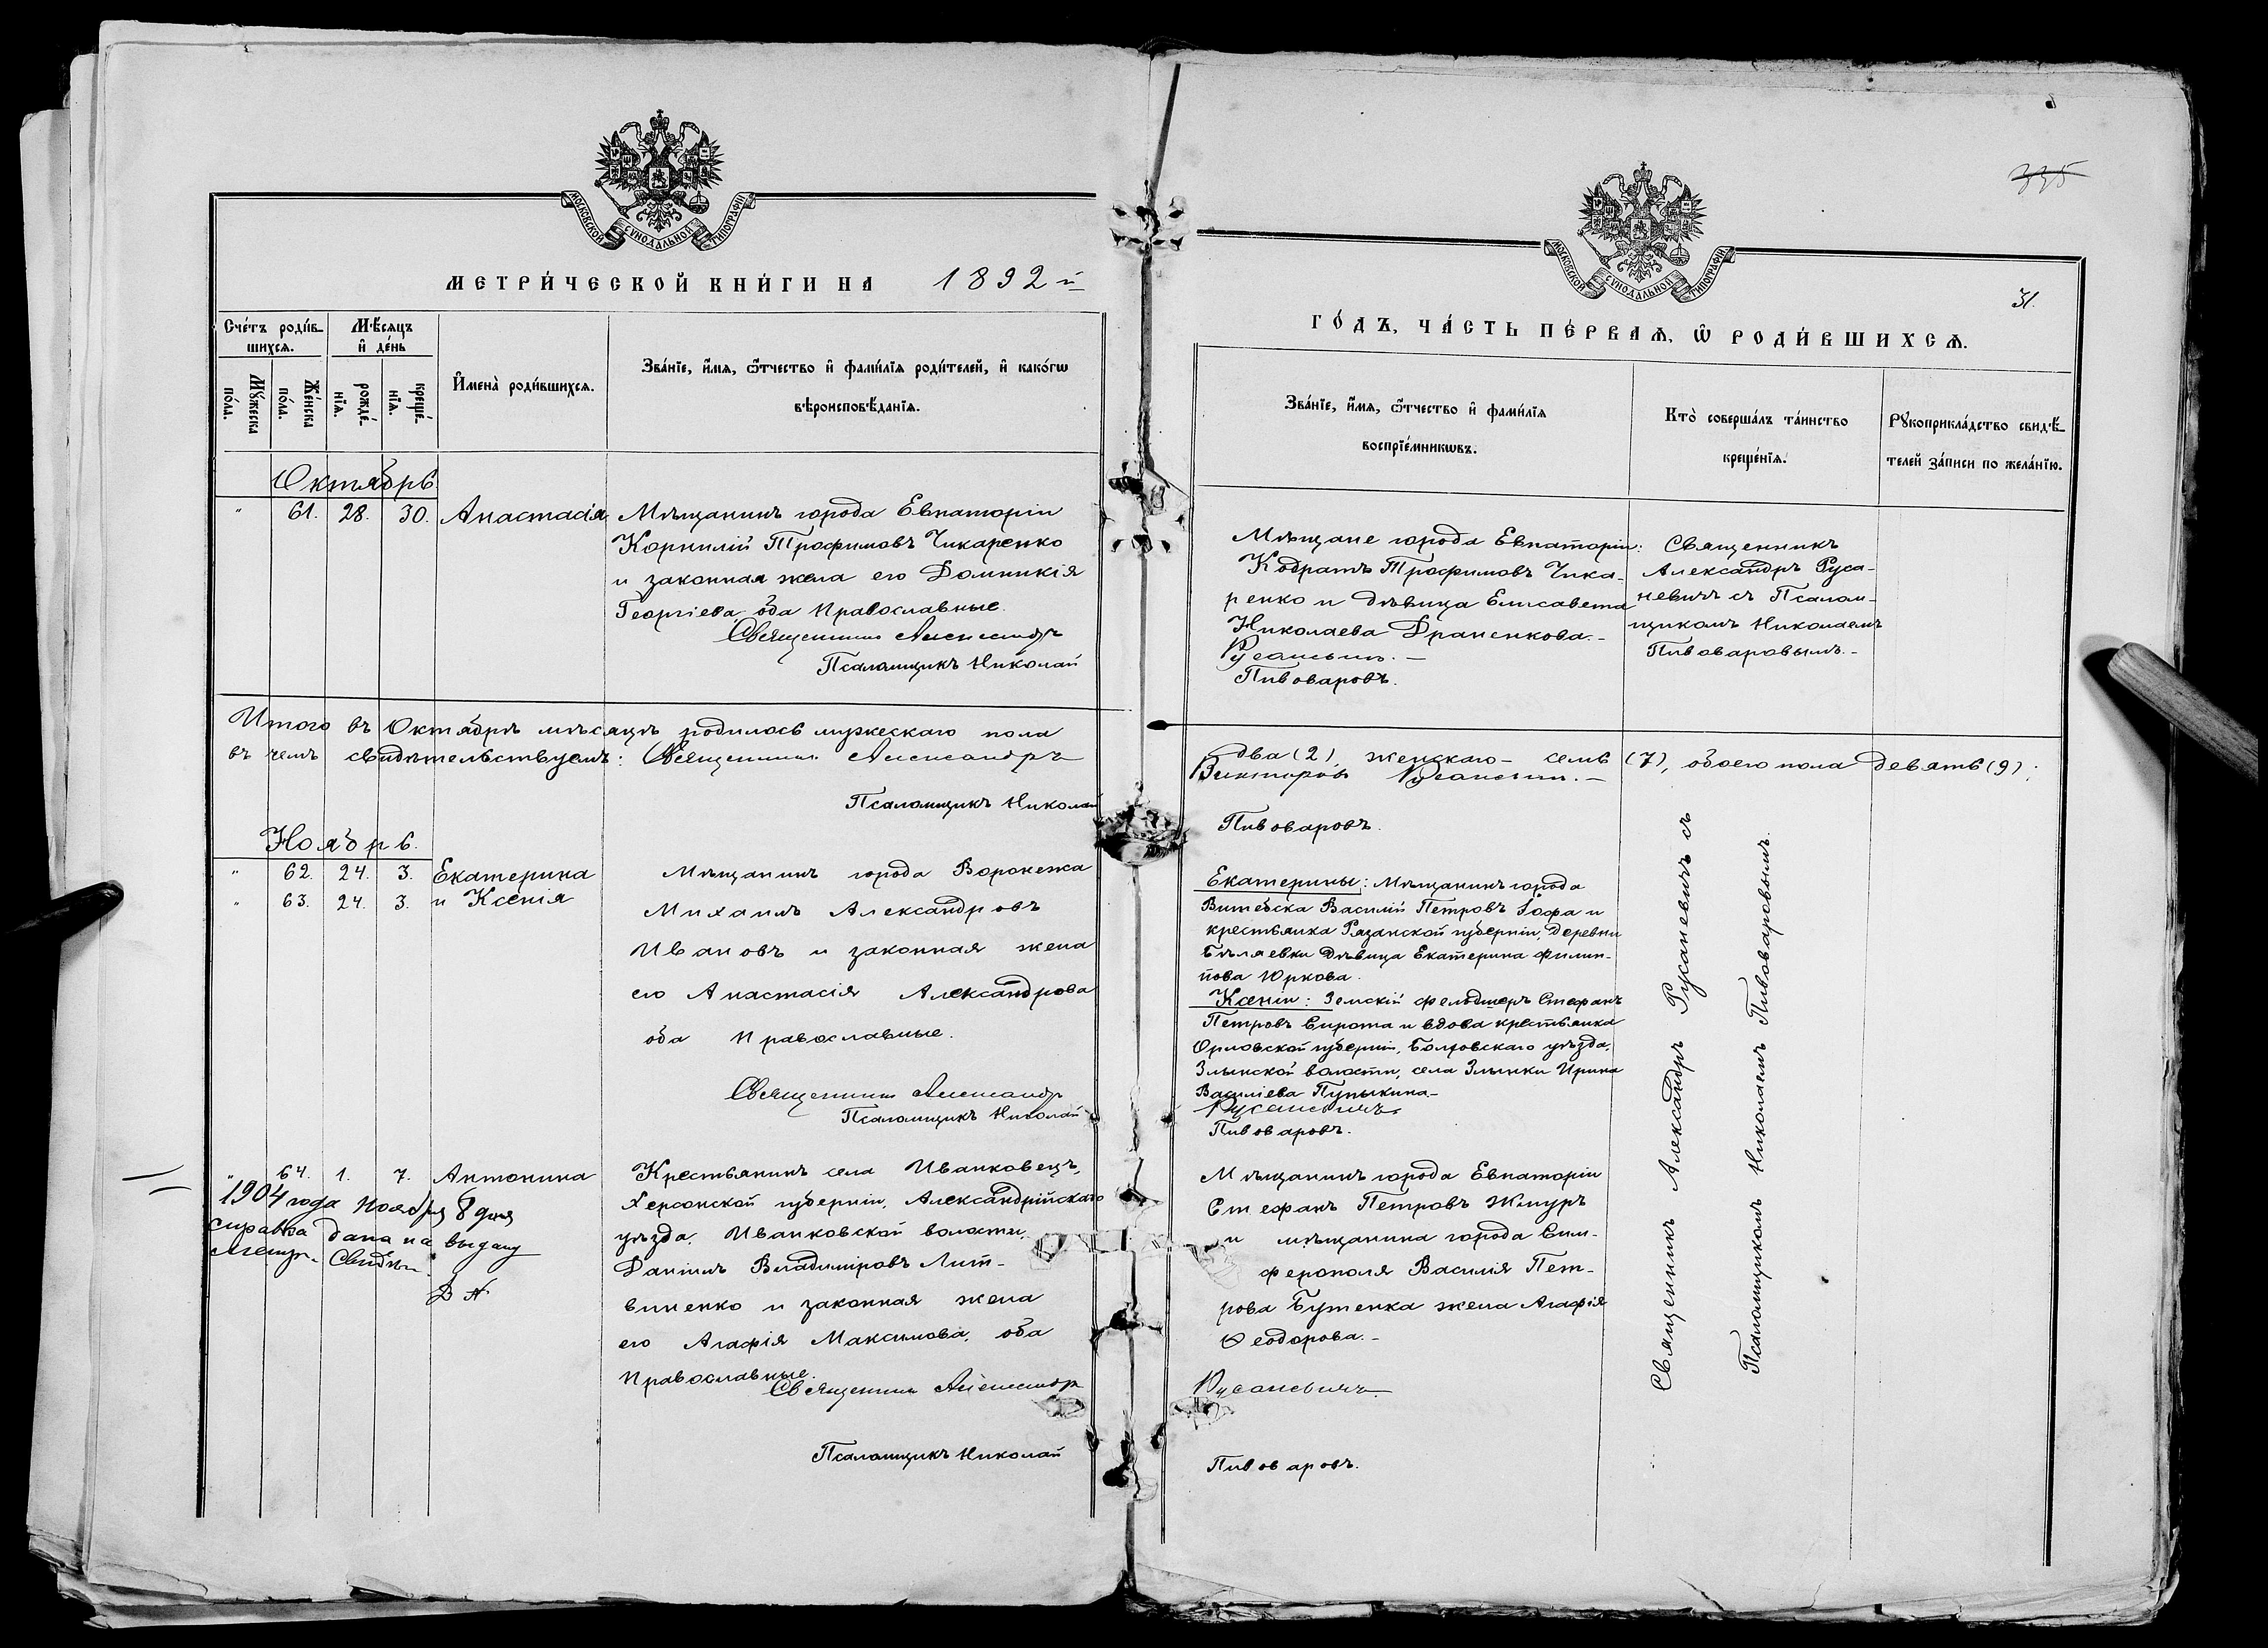 МОСКОВСКОЙ СѴНОДАЛЬНОЙ ТИПОГРАФІИ
МЕТРИ́ЧЕСКОЙ КНИ́ГИ НА 1892 й
Сче́тъ роди́в-
шихсѧ.
Мѣ́сѧцъ
и҆ де́нь
Мꙋ́жеска
по́ла.
Же́нска
по́ла.
рожде́-
нїѧ.
креще́-
нїѧ.
И҆мена̀ роди́вшихсѧ.
Зва́нїе, и҆́мѧ, ѻ҆́тчество и҆ фами́лїѧ роди́телей, и҆ како́гѡ
вѣроисповѣ́данїѧ.
Октябрь
" 61. 28. 30. Анастасія
Мѣщанинъ города Евпаторіи
Корнилій Трофимовъ Чикаренко
и законная жена его Домникія
Георгіева, оба Православные.
Священникъ Александръ
Псаломщикъ Николай
Итого въ Октябрѣ мѣсяцѣ родилось мужескаго пола
въ чемъ свидѣтельствуемъ: Священникъ Александръ
Псаломщикъ Николай
Ноябрь.
" 62. 24. 3. Екатерина
" 63. 24. 3. и Ксенія
Мѣщанинъ города Воронежа
Михаилъ Александровъ
Ивановъ и законная жена
его Анастасія Александрова
оба Православные.
Священникъ Александръ
Псаломщикъ Николай
" 64. 1. 7. Антонина
1904 года ноября 8 дня
справка дана на выдачу
метр. Свидѣт.
Крестьянинъ села Иванковецъ,
Херсонской губерніи, Александрійскаго
уѣзда, Иванковской волости,
Даніилъ Владиміровъ Лит-
виненко и законная жена
его Агафія Максимова, оба
Православные.
Священникъ Александръ
Псаломщикъ Николай
335
31.
МОСКОВСКОЙ СѴНОДАЛЬНОЙ ТИПОГРАФІИ
ГО́ДЪ, ЧА́СТЬ ПЕ́РВАѦ, Ѡ҆ РОДИ́ВШИХСѦ.
Зва́нїе, и҆́мѧ, ѻ҆́тчество и҆ фами́лїѧ
воспрїе́мникѡвъ.
Кто̀ соверша́лъ та́инство
креще́нїѧ.
Рꙋкоприкла́дство свидѣ́-
телей за́писи по жела́нїю.
Мѣщане города Евпаторіи:
Кодратъ Трофимовъ Чика-
ренко и дѣвица Елисавета
Николаева Драненкова.-
Русаневичъ.-
Пивоваровъ.
Священникъ
Александръ Руса-
невичъ съ Псалом-
щикомъ Николаемъ
Пивоваровымъ.-
два (2), женскаго - семь (7), обоего пола девять (9);
Викторовъ Русаневичъ.-
Пивоваровъ.
Екатерины: Мѣщанинъ города
Витебска Василій Петровъ Іофа и
крестьянка Рязанской губерніи, деревни
Бѣляевки дѣвица Екатерина Филип-
пова Юркова.
Ксеніи: Земскій фельдшеръ Стефанъ
Петровъ Сирота и вдова крестьянка
Орловской губерніи, Болховскаго уѣзда,
Злынской волости, села Злынки Ирина
Василіева Пупыкина-
Русаневичъ
Пивоваровъ.
Мѣщанинъ города Евпаторіи
Стефанъ Петровъ Жмуръ
и мѣщанина города Сим-
ферополя Василія Пет-
рова Бутенка жена Агафія
Ѳеодорова.-
Русаневичъ.
Пивоваровъ.
Священникъ Александръ Русаневичъ съ
Псаломщикомъ Николаемъ Пивоваровымъ.